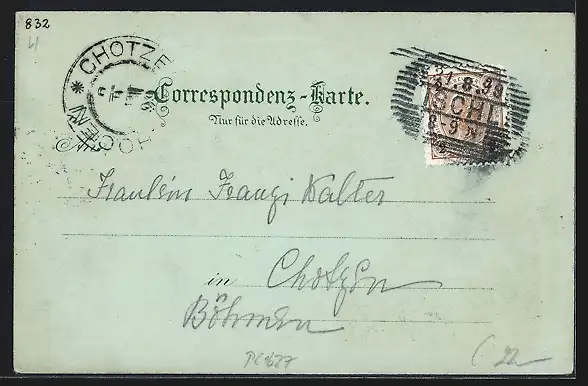 832
CHOTZEN
Correspondenz-Karte.
Nur für die Adresse.
31.8.99
SCHL
8-9
Fraulein Franzi Walter
in Chotzen
Böhmen
22